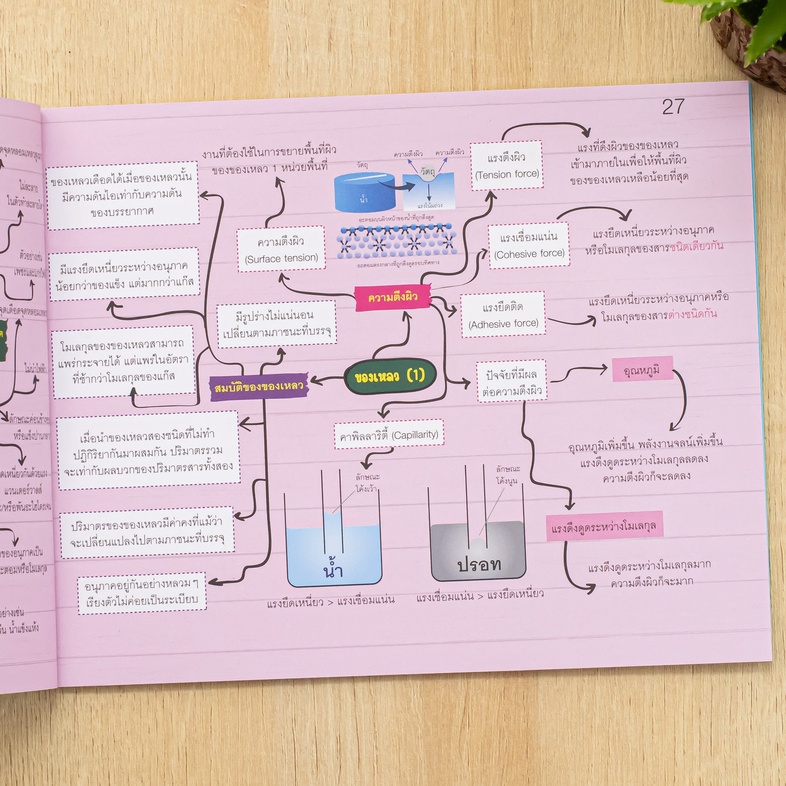 27
งานที่ต้องใช้ในการขยายพื้นที่ผิว
ของของเหลว 1 หน่วยพื้นที่
ของเหลวเดือดได้เมื่อของเหลวนั้น
มีความดันไอเท่ากับความดัน
ของบรรยากาศ
มีแรงยึดเหนี่ยวระหว่างอนุภาค
น้อยกว่าของแข็ง แต่มากกว่าแก๊ส
โมเลกุลของของเหลวสามารถ
แพร่กระจายได้ แต่แพร่ในอัตรา
ที่ช้ากว่าโมเลกุลของแก๊ส
เมื่อนำของเหลวสองชนิดที่ไม่ทำ
ปฏิกิริยากันมาผสมกัน ปริมาตรรวม
จะเท่ากับผลบวกของปริมาตรสารทั้งสอง
ปริมาตรของของเหลวมีค่าคงที่แม้ว่า
จะเปลี่ยนแปลงไปตามภาชนะที่บรรจุ
อนุภาคอยู่กันอย่างหลวม ๆ
เรียงตัวไม่ค่อยเป็นระเบียบ
ความตึงผิว
(Surface tension)
มีรูปร่างไม่แน่นอน
เปลี่ยนตามภาชนะที่บรรจุ
สมบัติของของเหลว
ของเหลว (1)
ความตึงผิว
วัตถุ
น้ำ
ความตึงผิว
ความตึงผิว
วัตถุ
แรงตึงผิว
(Tension force)
แรงที่ดึงผิวของของเหลว
เข้ามาภายในเพื่อให้พื้นที่ผิว
ของของเหลวเหลือน้อยที่สุด
แรงเชื่อมแน่น
(Cohesive force)
แรงยึดเหนี่ยวระหว่างอนุภาค
หรือโมเลกุลของสารชนิดเดียวกัน
แรงยึดติด
(Adhesive force)
แรงยึดเหนี่ยวระหว่างอนุภาคหรือ
โมเลกุลของสารต่างชนิดกัน
ปัจจัยที่มีผล
ต่อความตึงผิว
อุณหภูมิ
อุณหภูมิเพิ่มขึ้น พลังงานจลน์เพิ่มขึ้น
แรงดึงดูดระหว่างโมเลกุลลดลง
ความตึงผิวก็จะลดลง
แรงดึงดูดระหว่างโมเลกุล
แรงดึงดูดระหว่างโมเลกุลมาก
ความตึงผิวก็จะมาก
คาพิลลาริตี้ (Capillarity)
ลักษณะ
โค้งเว้า
น้ำ
แรงยึดเหนี่ยว > แรงเชื่อมแน่น
ลักษณะ
โค้งนูน
ปรอท
แรงเชื่อมแน่น > แรงยึดเหนี่ยว